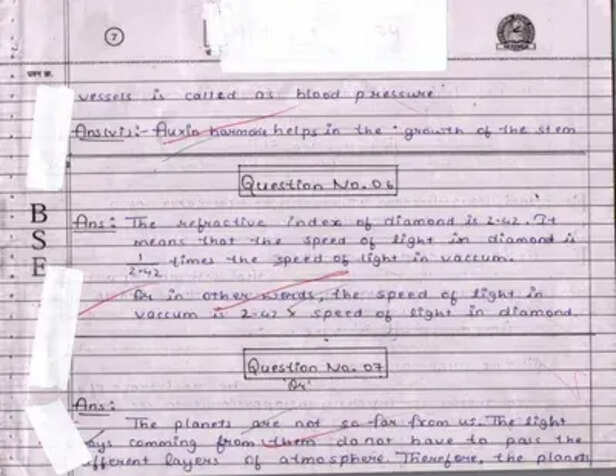 7
प्रश्न क्र.
vessels is called as blood pressure
Ans(vi):- Auxin harmone helps in the growth of the stem
Question No. 06
B
S
E
Ans: The refractive index of diamond is 2.42. It
means that the speed of light in diamond is
1/2.42 times the speed of light in vaccum.
Or in other words, the speed of light in
vaccum is 2.42 x speed of light in diamond.
Question No. 07
'Or'
Ans:
The planets are not so far from us. The light
comming from them do not have to pass the
different layers of atmosphere. Therefore, the planets